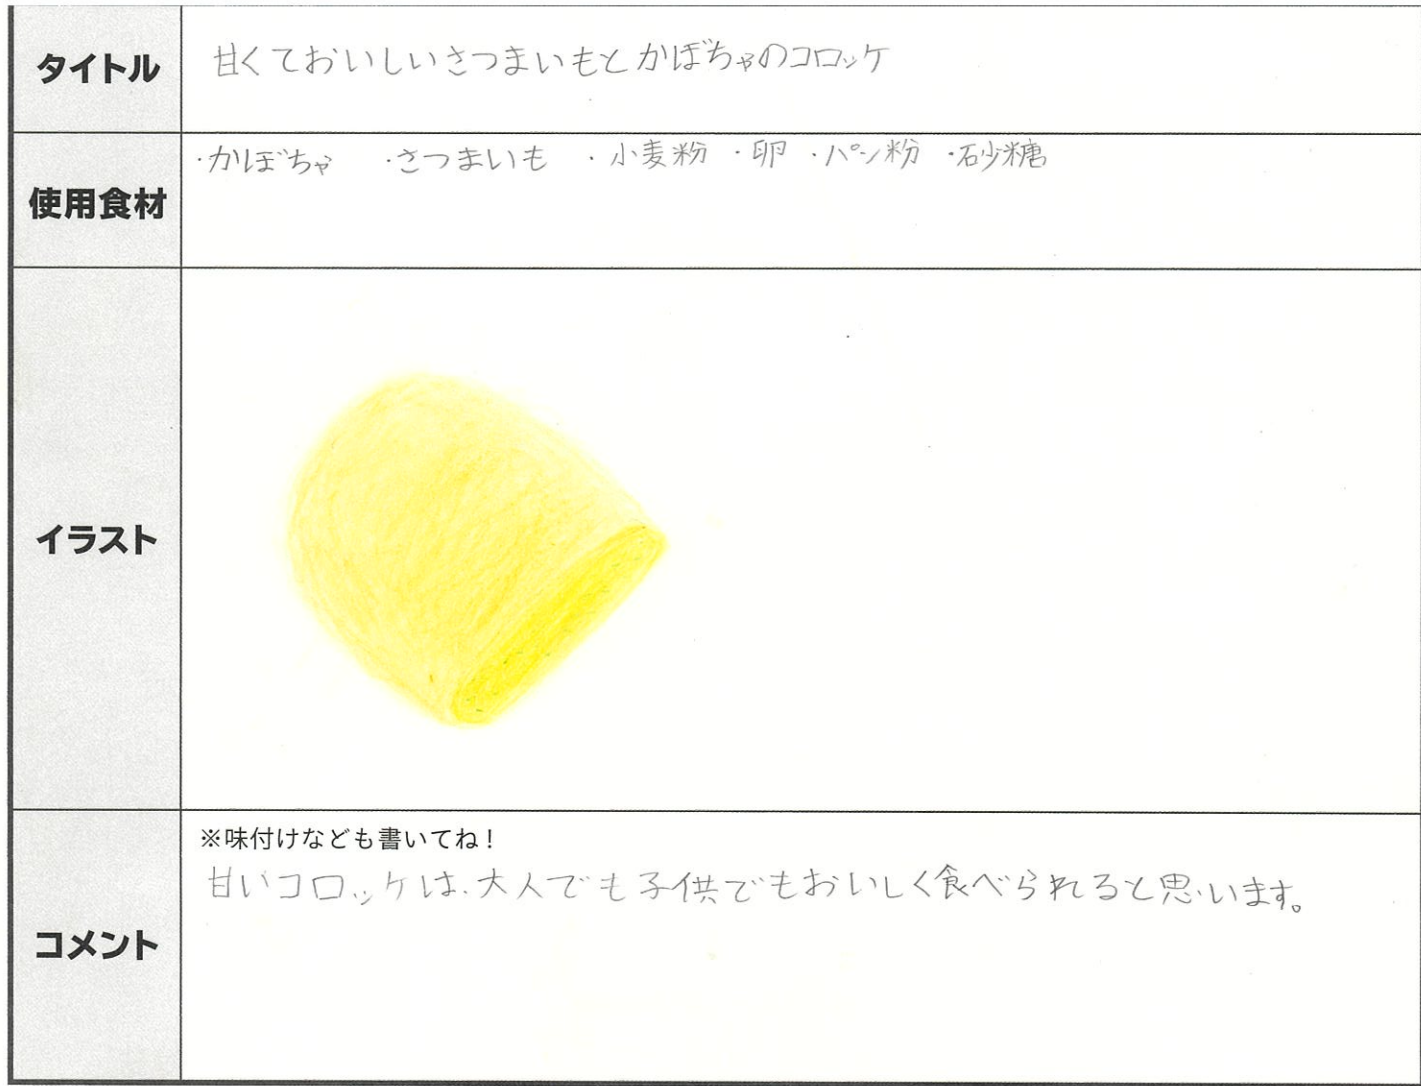 タイトル
甘くておいしいさつまいもとかぼちゃのコロッケ
使用食材
・かぼちゃ ・さつまいも ・小麦粉 ・卵 ・パン粉 ・砂糖
イラスト
コメント
※味付けなども書いてね！
甘いコロッケは、大人でも子供でもおいしく食べられると思います。